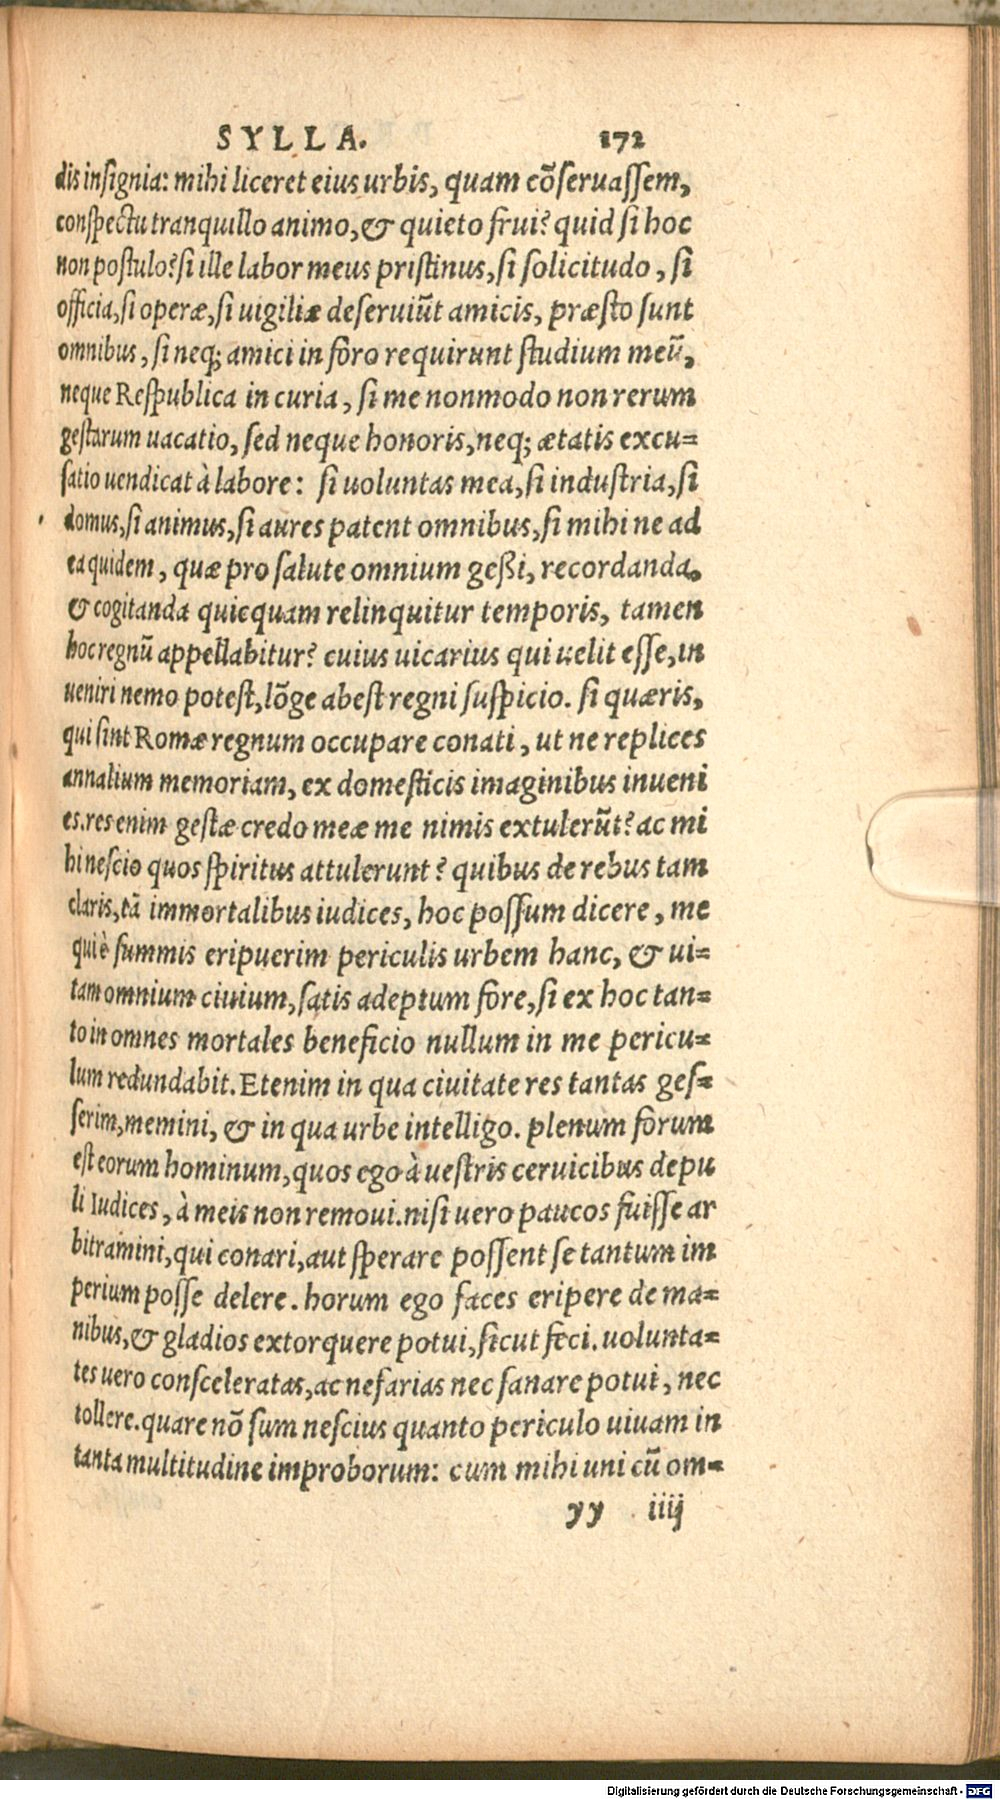 SYLLA. 172
dis insignia: mihi liceret eius urbis, quam cõseruassem,
conspectu tranquillo animo, & quieto frui? quid si hoc
non postulo? si ille labor meus pristinus, si solicitudo, si
officia, si operæ, si uigiliæ deseruiũt amicis, præsto sunt
omnibus, si neq; amici in foro requirunt studium meũ,
neque Respublica in curia, si me nonmodo non rerum
gestarum uacatio, sed neque honoris, neq; ætatis excu=
satio uendicat à labore: si uoluntas mea, si industria, si
domus, si animus, si aures patent omnibus, si mihi ne ad
ea quidem, quæ pro salute omnium geßi, recordanda,
& cogitanda quicquam relinquitur temporis, tamen
hoc regnũ appellabitur? cuius uicarius qui uelit esse, in
ueniri nemo potest, lõge abest regni suspicio. si quæris,
qui sint Romæ regnum occupare conati, ut ne replices
annalium memoriam, ex domesticis imaginibus inueni
es. res enim gestæ credo meæ me nimis extulerũt? ac mi
hi nescio quos spiritus attulerunt? quibus de rebus tam
claris, tã immortalibus iudices, hoc possum dicere, me
qui è summis eripuerim periculis urbem hanc, & ui=
tam omnium ciuium, satis adeptum fore, si ex hoc tan=
to in omnes mortales beneficio nullum in me pericu=
lum redundabit. Etenim in qua ciuitate res tantas ges=
serim, memini, & in qua urbe intelligo. plenum forum
est eorum hominum, quos ego à uestris ceruicibus depu
li Iudices, à meis non remoui. nisi uero paucos fuisse ar
bitramini, qui conari, aut sperare possent se tantum im
perium posse delere. horum ego faces eripere de ma=
nibus, & gladios extorquere potui, sicut feci. uolunta=
tes uero consceleratas, ac nefarias nec sanare potui, nec
tollere. quare nõ sum nescius quanto periculo uiuam in
tanta multitudine improborum: cum mihi uni cũ om=
yy iiij
Digitalisierung gefördert durch die Deutsche Forschungsgemeinschaft - DFG